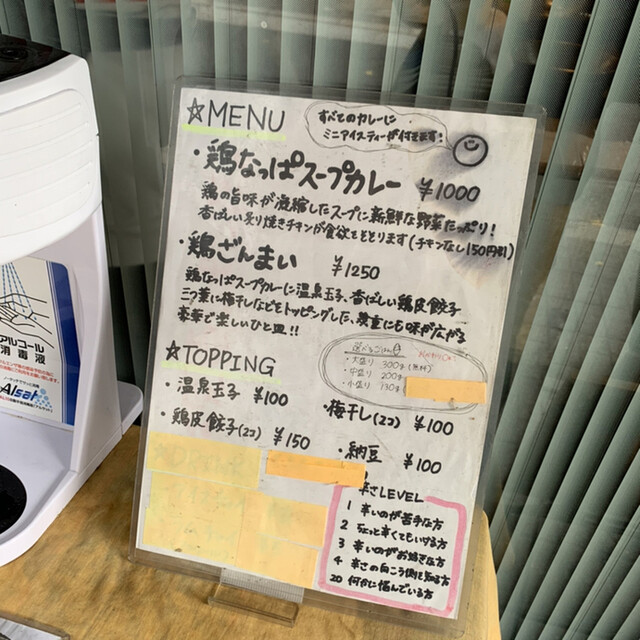 ☆MENU
すべてのカレーに
ミニアイスティーが付きます!
・鶏なっぱスープカレー ¥1000
鶏の旨味が凝縮したスープに新鮮な野菜たっぷり!
香ばしい炙り焼きチキンが食欲をそそります(チキンなし150円引)
・鶏ざんまい ¥1250
鶏なっぱスープカレーに温泉玉子、香ばしい鶏皮餃子
三つ葉に梅干しなどをトッピングした、幾重にも味が広がる
豪華で楽しいひと皿!!
選べるごはん量
・大盛り 300g(無料)
・中盛り 200g
・小盛り 130g
☆TOPPING
・温泉玉子 ¥100
・鶏皮餃子(2コ) ¥150
・梅干し(2コ) ¥100
・納豆 ¥100
辛さLEVEL
1 辛いのが苦手な方
2 ちょっと辛くてもいける方
3 辛いのがお好きな方
4 辛さの向こう側を知る方
20 何かに悩んでいる方
アルコール
消毒液
Alsat